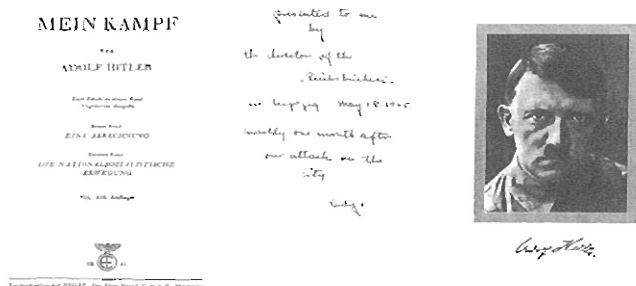 MEIN KAMPF
von
ADOLF HITLER
Zwei Bände in einem Band
Ungekürzte Ausgabe
Erster Band
EINE ABRECHNUNG
Zweiter Band
DIE NATIONALSOZIALISTISCHE
BEWEGUNG
Auflage
19 41
presented to me
by
the director of the
in Leipzig May 18. 1945
exactly one month after
our attack on the
city
Adolf Hitler